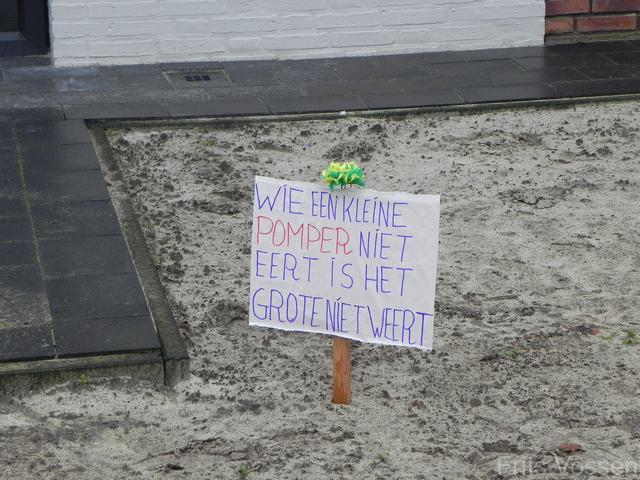 WIE EEN KLEINE
POMPER NIET
EERT IS HET
GROTE NIET WEERT
Frit Vossen